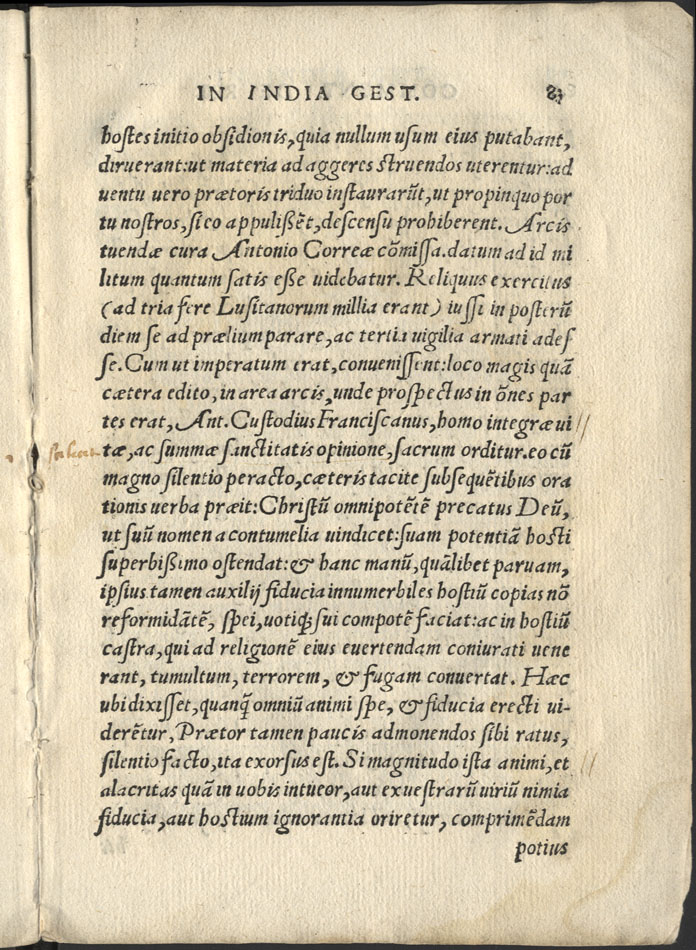 IN INDIA GEST.
hostes initio obsidionis, quia nullum usum eius putabant,
diruerant: ut materia ad aggeres struendos uterentur: ad
uentu uero prætoris triduo instaurarũt, ut propinquo por
tu nostros, si eo appulißẽt, descensu prohiberent. Arcis
tuendæ cura Antonio Correæ cõmissa. datum ad id mi
litum quantum satis eße uidebatur. Reliquus exercitus
(ad tria fere Lusitanorum millia erant) iussi in posterũ
diem se ad prælium parare, ac tertia uigilia armati ades
se. Cum ut imperatum erat, conuenissent: loco magis quã
cætera edito, in area arcis, unde prospectus in õnes par
tes erat, Ant. Custodius Franciscanus, homo integræ ui
tæ, ac summæ sanctitatis opinione, sacrum orditur. eo cũ
magno silentio peracto, cæteris tacite subsequẽtibus ora
tionis uerba præit: Christũ omnipotẽtẽ precatus Deũ,
ut suũ nomen a contumelia uindicet: suam potentiã hosti
superbißimo ostendat: & hanc manũ, quãlibet paruam,
ipsius tamen auxilij fiducia innumerbiles hostiũ copias nõ
reformidãtẽ, spei, uotiq; sui compotẽ faciat: ac in hostiũ
castra, qui ad religionẽ eius euertendam coniurati uene
rant, tumultum, terrorem, & fugam conuertat. Hæc
ubi dixisset, quanq̃ omniũ animi spe, & fiducia erecti ui-
derẽtur, Prætor tamen paucis admonendos sibi ratus,
silentio facto, ita exorsus est. Si magnitudo ista animi, et
alacritas quã in uobis intueor, aut ex uestrarũ uiriũ nimia
fiducia, aut hostium ignorantia oriretur, comprimẽdam
potius